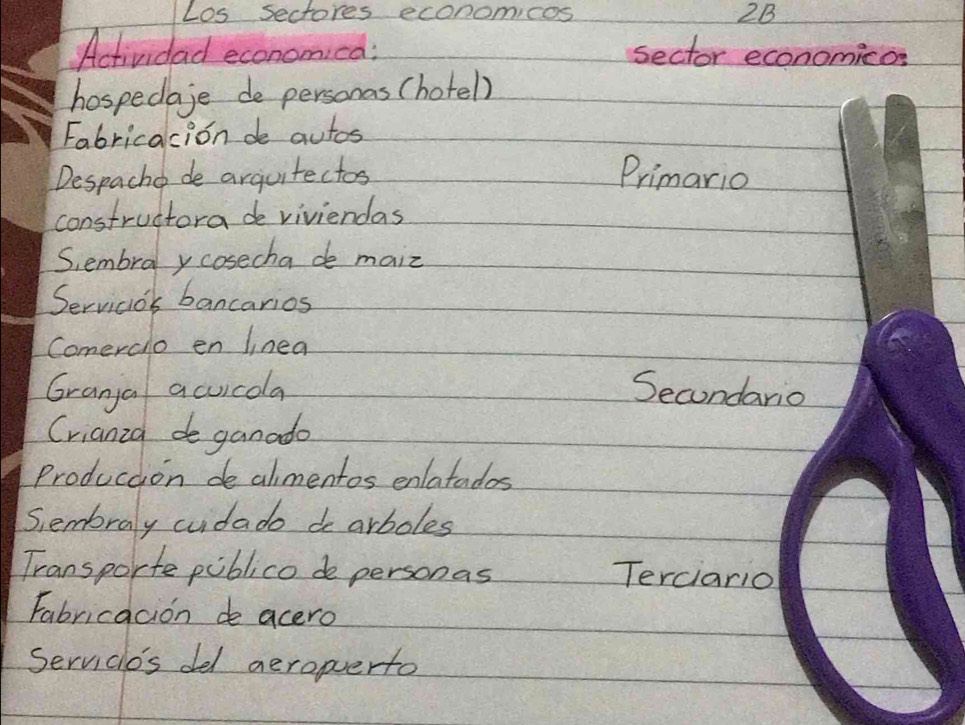 Los sectores economicos 2B
Actividad economica: sector economico:
hospedaje de personas (hotel)
Fabricación de autos
Despacho de arquitectos Primario
constructora de viviendas
Siembra y cosecha de maiz
Servicios bancarios
Comercio en linea
Granja acuicola Secundario
Crianza de ganado
Producción de alimentos enlatados
Siembra y cuidado de arboles
Transporte público de personas Terciario
Fabricación de acero
Servicios del aeropuerto